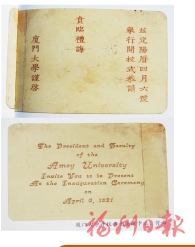 茲定陽曆四月六號
舉行開校式恭請
貴臨禮誨
廈門大學謹啓
The President and Faculty
of the
Amoy University
Invite You to be Present
At the Inauguration Ceremony
on
April 6, 1921
福州日报